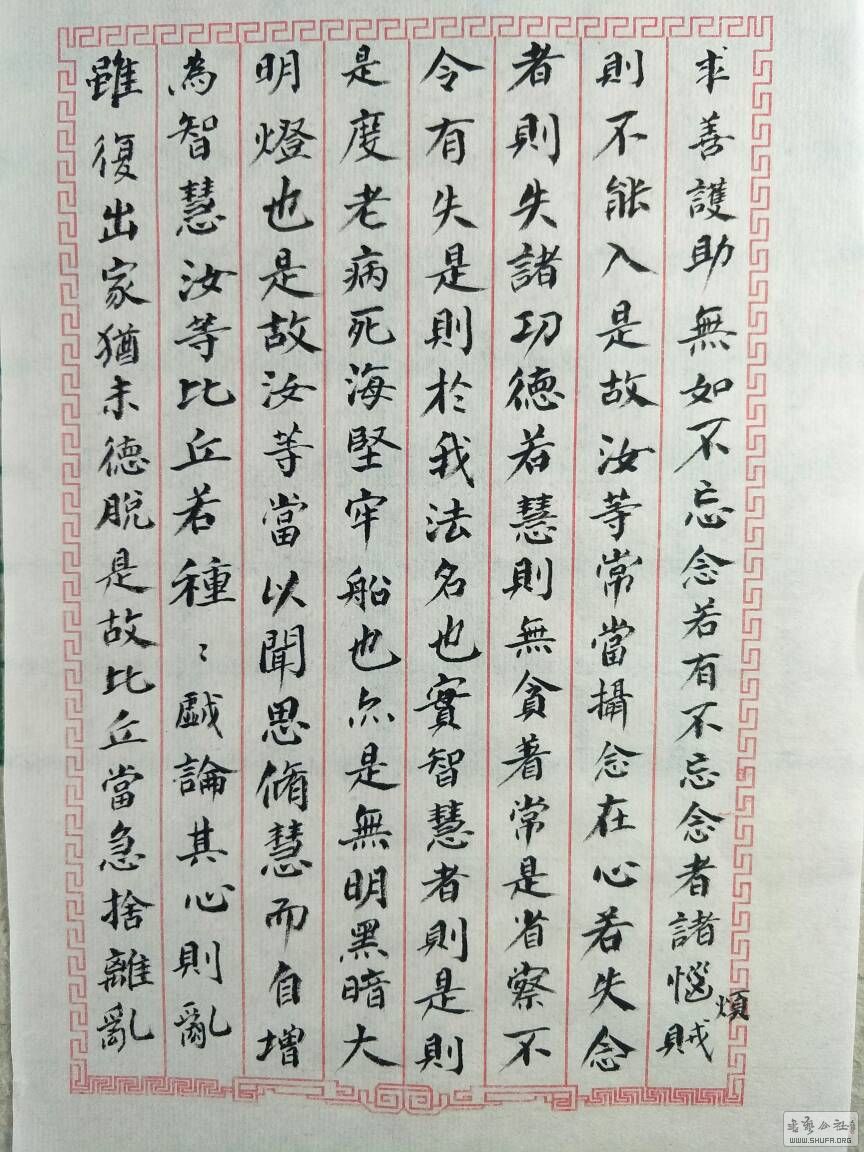 求善護助無如不忘念若有不忘念者諸惱賊
煩
則不能入是故汝等常當攝念在心若失念
者則失諸功德若慧則無貪著常是省察不
令有失是則於我法名也實智慧者則是則
是度老病死海堅牢船也亦是無明黑暗大
明燈也是故汝等當以聞思脩慧而自增
為智慧汝等比丘若種〻戲論其心則亂
雖復出家猶未德脫是故比丘當急捨離亂
WWW.SHUFA.ORG